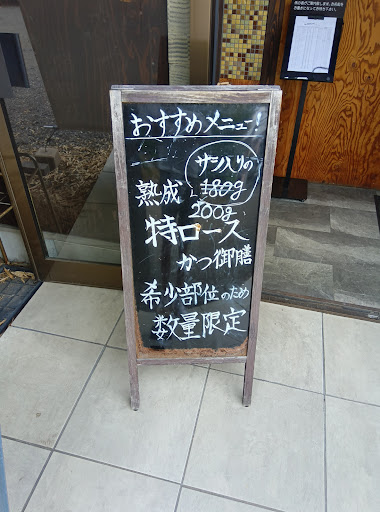 おすすめメニュー!
サシ入りの
熟成 180g
200g
特ロース
かつ御膳
希少部位のため
数量限定